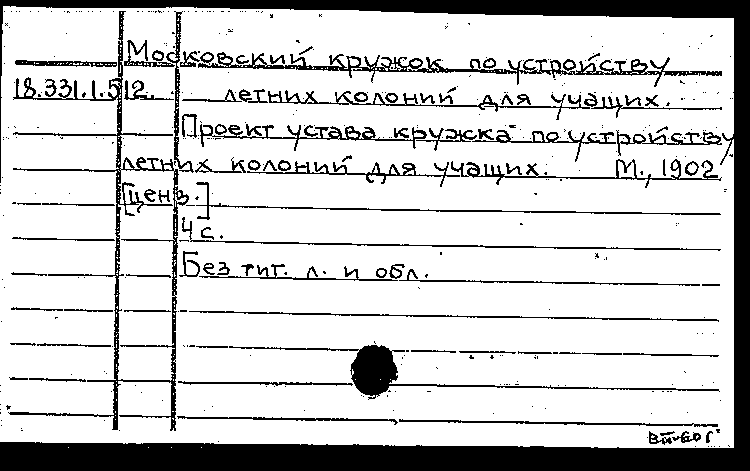 Московский кружок по устройству
18.331.1.512. летних колоний для учащих.
Проект устава кружка по устройству
летних колоний для учащих. М., 1902
[ценз.]
4 с.
Без тит. л. и обл.